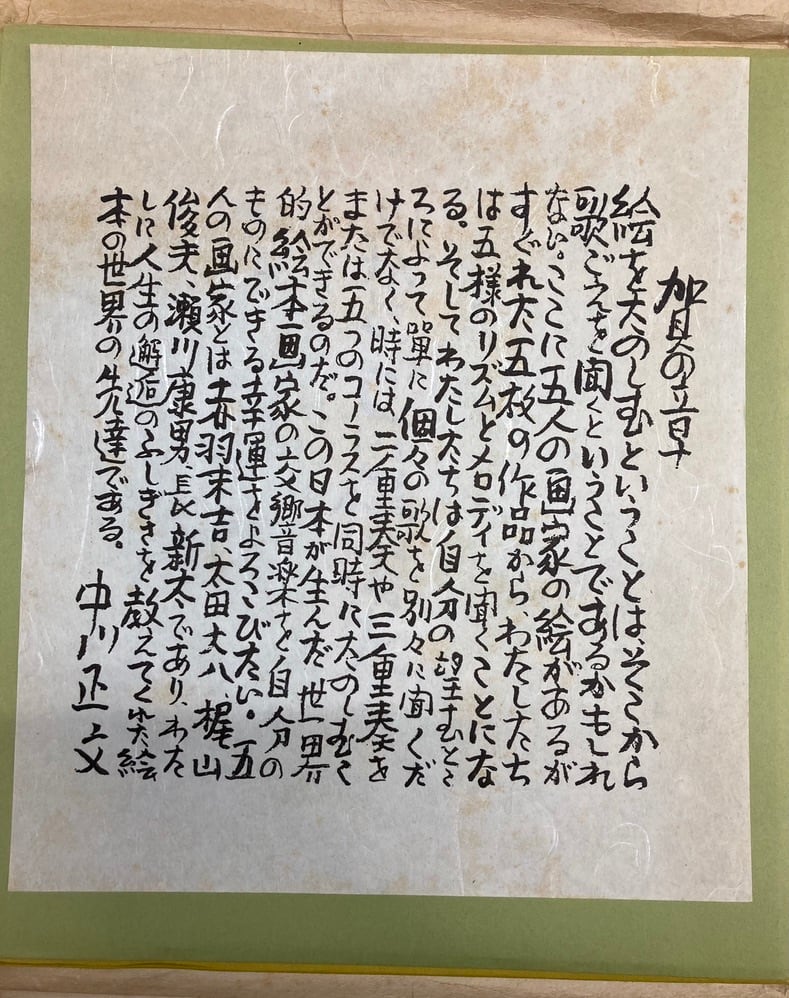 賀の言葉
絵をたのしむということは、そこから
歌ごえを聞くということであるかもしれ
ない。ここに五人の画家の絵があるが
すぐれた五枚の作品から、わたしたち
は五様のリズムとメロディを聞くことにな
る。そしてわたしたちは自分の望むとこ
ろによって單に個々の歌を別々に聞くだ
けでなく、時には二重奏や三重奏を
または五つのコーラスを同時にたのしむこ
とができるのだ。この日本が生んだ世界
的絵本画家の交響音楽を自分の
ものにできる幸運をよろこびたい。五
人の画家とは赤羽末吉、太田大八、梶山
俊夫、瀬川康男、長新太であり、わた
しに人生の邂逅のふしぎさを教えてくれた絵
本の世界の先達である。
中川正文